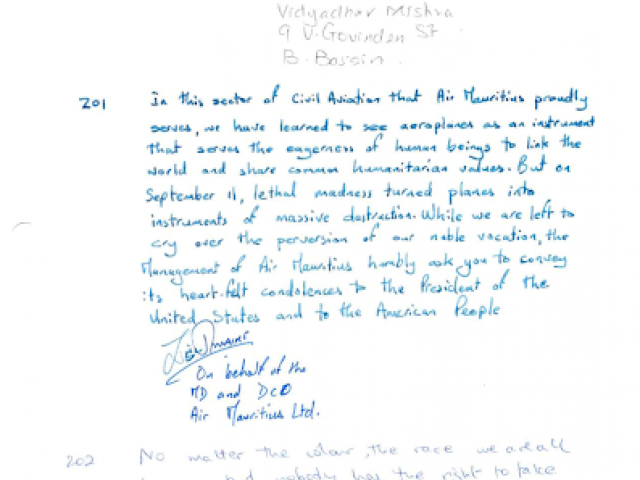 Vidyadhar Mishra
9 V. Govinden St
B. Bassin.
201 In this sector of Civil Aviation that Air Mauritius proudly
serves, we have learned to see aeroplanes as an instrument
that serves the eagerness of human beings to link the
world and share common humanitarian values. But on
September 11, lethal madness turned planes into
instruments of massive destruction. While we are left to
cry over the perversion of our noble vocation, the
Management of Air Mauritius humbly ask you to convey
its heart-felt condolences to the President of the
United States and to the American People
On behalf of the
MD and DCO
Air Mauritius Ltd.
202 No matter the colour, the race we are all
nobody has the right to take